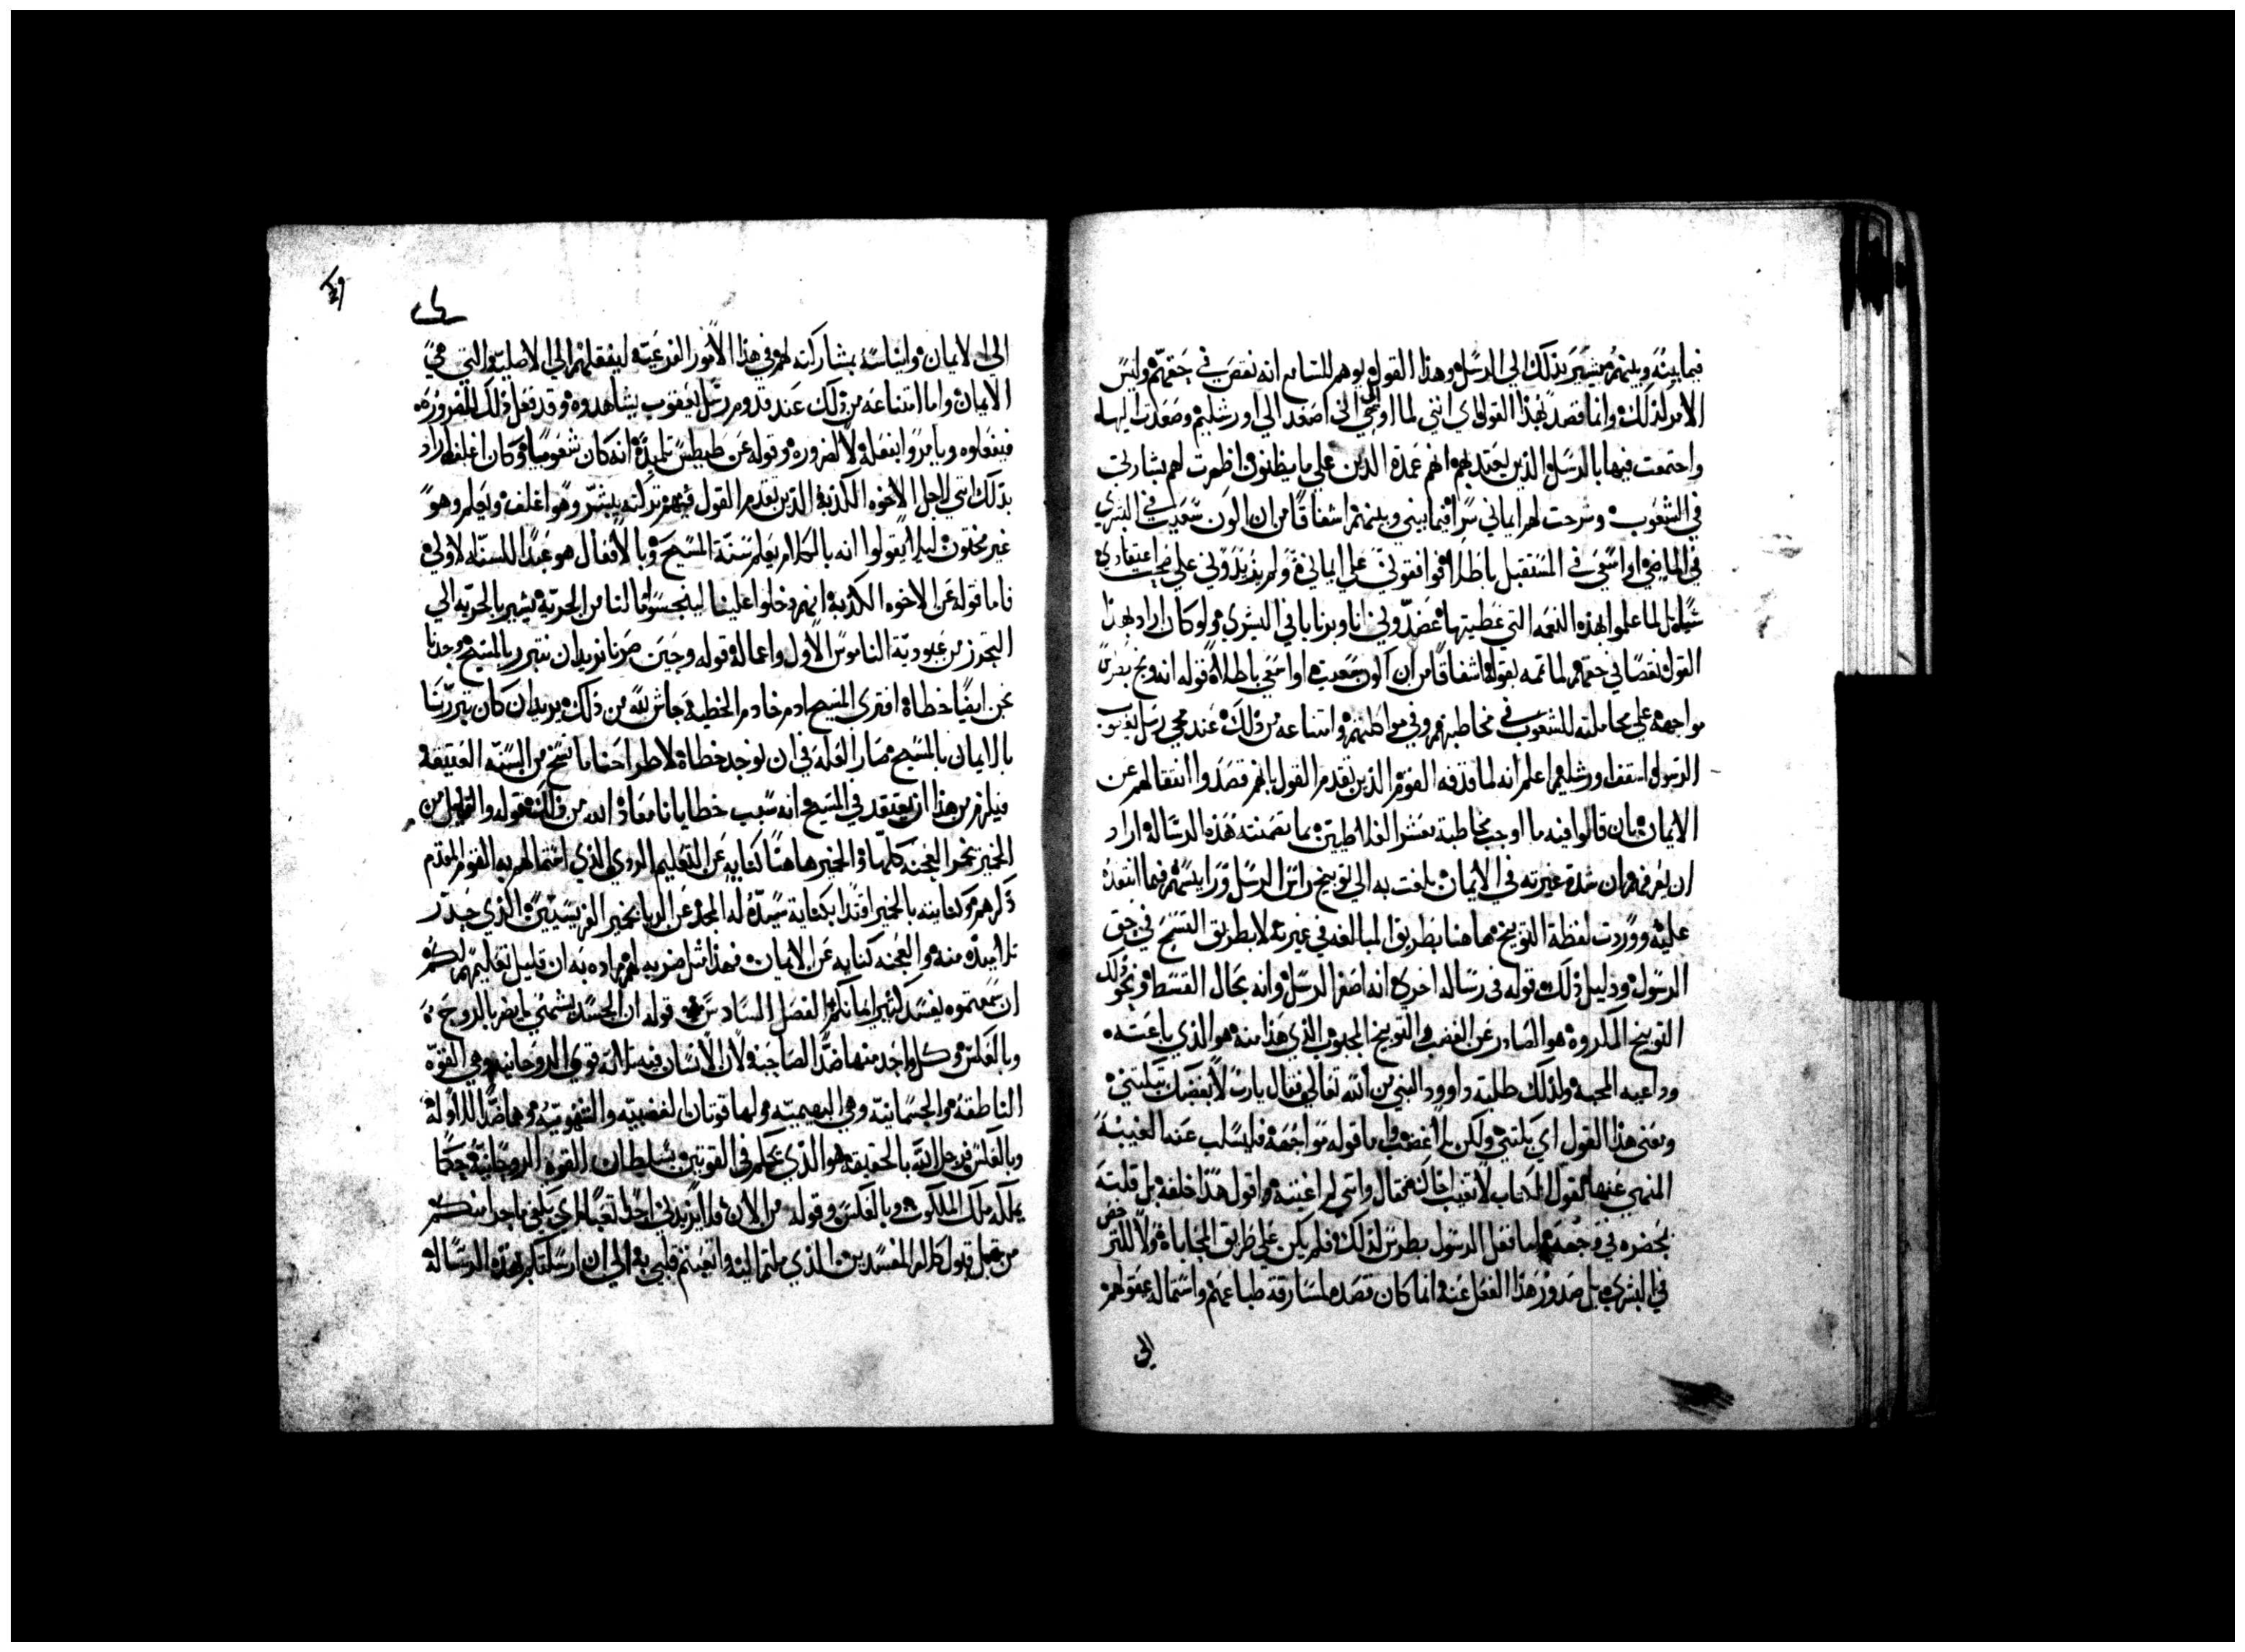 فيما بينه وبينهم يشير بذلك الي الرسل وهذا القول يوهم للسامع انه نقص في حقهم وليس
الامر كذلك وانما قصد بهذا القول اي انني لما اوحي الي اصعد الي اورشليم وصعدت اليها
واجتمعت فيها بالرسل والذين يعتد بهم انهم عمدة الدين علي ما يظنون واظهرت لهم بشارتي
في الشعوب وشرحت لهم ايماني سرا فيما بيني وبينهم اشفاقا من ان اكون سعيت في البشري
في الماضي او اسعي في المستقبل باطلا فوافقوني علي ايماني ولم يزيدوني علي صحة اعتقادي
شيا بل لما علموا بهذه النعمه التي عطيتها عضدوني انا وبرنابا في البشري ولو كان اراد بهذا
القول نقصا في حقهم لما تمه بقوله اشفاقا من ان اكون سعيت او اسعي باطلا قوله انه وبخ بطرس
مواجهة علي محاملته للشعوب في مخاطبتهم وفي مواطنهم وامتناعه من ذلك عند مجي رسل يعقوب
الرسول اسقف اورشليم اعلم انه لما قذفه القوم الذين تقدم القول بانهم قصدوا انتقالهم عن
الايمان بان قالوا فيه ما اوجب مخاطبة معشر الغلاطيين بما تضمنته هذه الرسالة اراد
ان يعرفهم ان شدة غيرته في الايمان بلغت به الي توبيخ راس الرسل ورايسهم فيما انتقده
عليه ووردت لفظة التوبيخ هاهنا بطريق المبالغه في غيرته لا بطريق التسمج في حق
الرسول ودليل ذلك قوله في رساله اخري انه اصغر الرسل وانه بحال القسط ونحو ذلك
التوبيخ المكروه هو الصادر عن الغضب والتوبيخ المحبوب الذي هذا منه هو الذي باعثه
وداعيه المحبه ولذلك طلبته داوود النبي من الله تعالي فقال يارب لا بغضبك تبكتني
ومعني هذا القول اي بكتني ولكن بلا غضب واما قوله مواجهة فليسلب عنه الغيبة
المنهي عنها لقول الكتاب لا تغيب اخاك فقال وانني لم اغتبه واقول هذا خلفه بل قلته
بحضره في وجهه واما فعل الرسول بطرس لذلك فلم يكن علي طريق المحاباة ولا للترخص
في البشري بل صدور هذا الفعل عنه انما كان قصده لمسارقة طباعهم واستمالة عقولهم
الي
الي الايمان وايناسه بمشاركته لهم في هذا الامور الفرعية لينقلهم الي الاصلية والتي هي
الايمان واما امتناعه من ذلك عند قدوم رسل يعقوب يشاهدوه وقد فعل ذلك للضروره
فيفعلوه ويامروا بفعله لا لضروره وقوله عن طيطس تلميذه انه كان شعوبيا وكان اغلف اراد
بذلك انني لاجل الاخوه الكذبة الذين تقدم القول فيهم تركته يبشر وهو اغلف ويعلم وهو
غير مختون ليلا يقولوا انه بالكلام يعلم سنة المسيح وبالافعال هو عبدا للسنه الاولي
فاما قوله عن الاخوه الكذبة انهم دخلوا علينا ليتجسسوا ما لنا من الحرية يشير بالحريه الي
التحرز من عبودية الناموس الاول واعماله قوله وحين صرنا نريد ان نتبرر بالمسيح وجدنا
نحن ايضا خطاة افتري المسيح ادم خادم الخطية حاش لله من ذلك يريد ان كان تبررنا
بالايمان بالمسيح صار العله في ان نوجد خطاة لاطراحنا ما نسخ من السنه العتيقه
فيلزم من هذا ان يعتقد في المسيح انه سبب خطايانا معاذ الله من ذلك قوله والقليل من
الخمير يخمر العجنه كلها والخمير هاهنا كنايه عن التعليم الردي الذي استمالهم به القوم المقدم
ذكرهم وكنايته بالخمير اقتدا بكناية سيده له المجد عن الريا بخمير الفريسيين الذي حذر
تلاميذه منه والعجنه كنايه عن الايمان فهذا مثل ضربه لهم مراده به ان قليل تعليمهم لكم
ان سمعتموه يفسد كثير امانتكم الفصل السادس قوله ان الجسد يشتهي ما يضر بالروح
وبالعكس وكل واحد منهما ضد لصاحبه لان الانسان فيه ثلاثة قوي الروحانيه وهي القوة
الناطقه والجسمانيه وهي البهيميه ولها قوتان الغضبيه والشهوتيه وهما ضد للاوله
وبالعكس فرجل الله بالحقيقه هو الذي يحكم في القوتين بسلطان القوه الروحانية حكما
يملكه ملك الملكوت وبالعكس وقوله من الان فلا يزيدني احد تعبا اي يكفي ما جرا منكم
من قبل قبول كلام المفسدين الذي ملتم اليه واتعبتم قلبي به الي ان ارسلت لكم هذه الرسالة